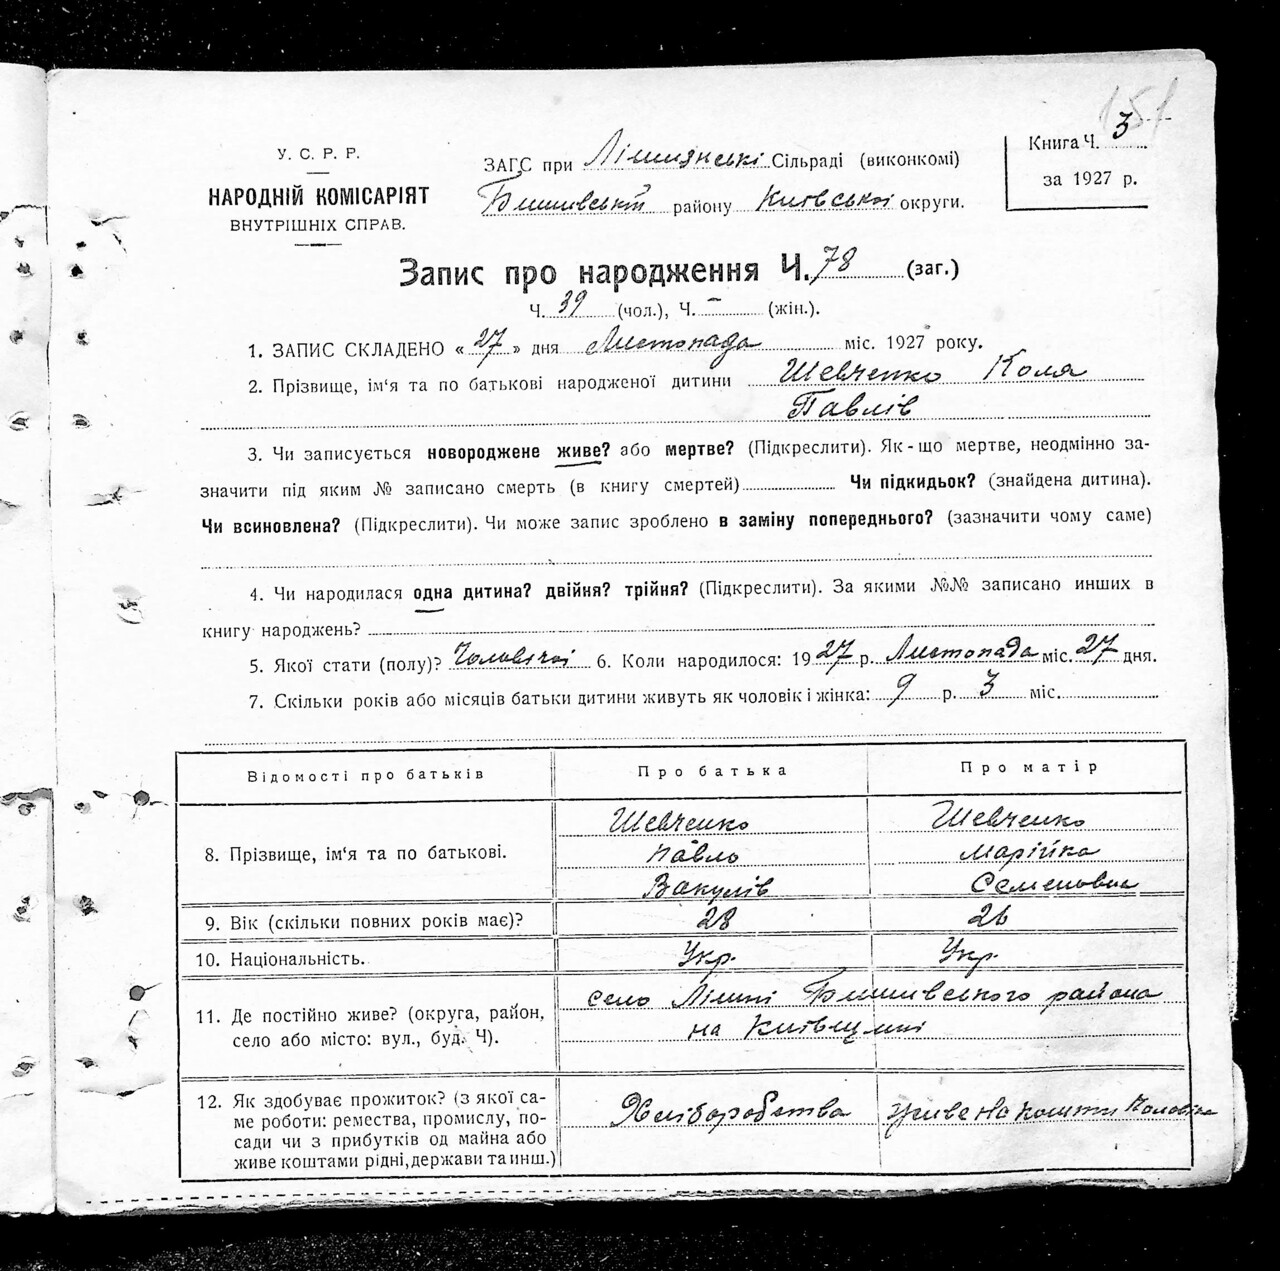 151
У. С. Р. Р.
НАРОДНІЙ КОМІСАРІЯТ
ВНУТРІШНІХ СПРАВ.
ЗАГС при Лишнянські Сільраді (виконкомі)
Бишивській району Київської округи.
Книга Ч. 3
за 1927 р.
Запис про народження Ч. 78 (заг.)
Ч. 39 (чол.), Ч. – (жін.).
1. ЗАПИС СКЛАДЕНО « 27 » дня Листопада міс. 1927 року.
2. Прізвище, ім'я та по батькові народженої дитини Шевченко Коля
Павлів
3. Чи записується новороджене живе? або мертве? (Підкреслити). Як-що мертве, неодмінно за-
значити під яким № записано смерть (в книгу смертей) Чи підкидьок? (знайдена дитина).
Чи всиновлена? (Підкреслити). Чи може запис зроблено в заміну попереднього? (зазначити чому саме)
4. Чи народилася одна дитина? двійня? трійня? (Підкреслити). За якими №№ записано инших в
книгу народжень?
5. Якої стати (полу)? Чоловічої 6. Коли народилося: 1927 р. Листопада міс. 27 дня.
7. Скільки років або місяців батьки дитини живуть як чоловік і жінка: 9 р. 3 міс.
Відомості про батьків Про батька Про матір
8. Прізвище, ім'я та по батькові. Шевченко Павло Вакулів Шевченко Марійка Семеновна
9. Вік (скільки повних років має)? 28 26
10. Національність. Укр. Укр.
11. Де постійно живе? (округа, район, село Лишні Бишивського района
село або місто: вул., буд. Ч). на Київщині
12. Як здобуває прожиток? (з якої са- Хліборобства живе на кошти чоловіка
ме роботи: ремества, промислу, по-
сади чи з прибутків од майна або
живе коштами рідні, держави та инш.)